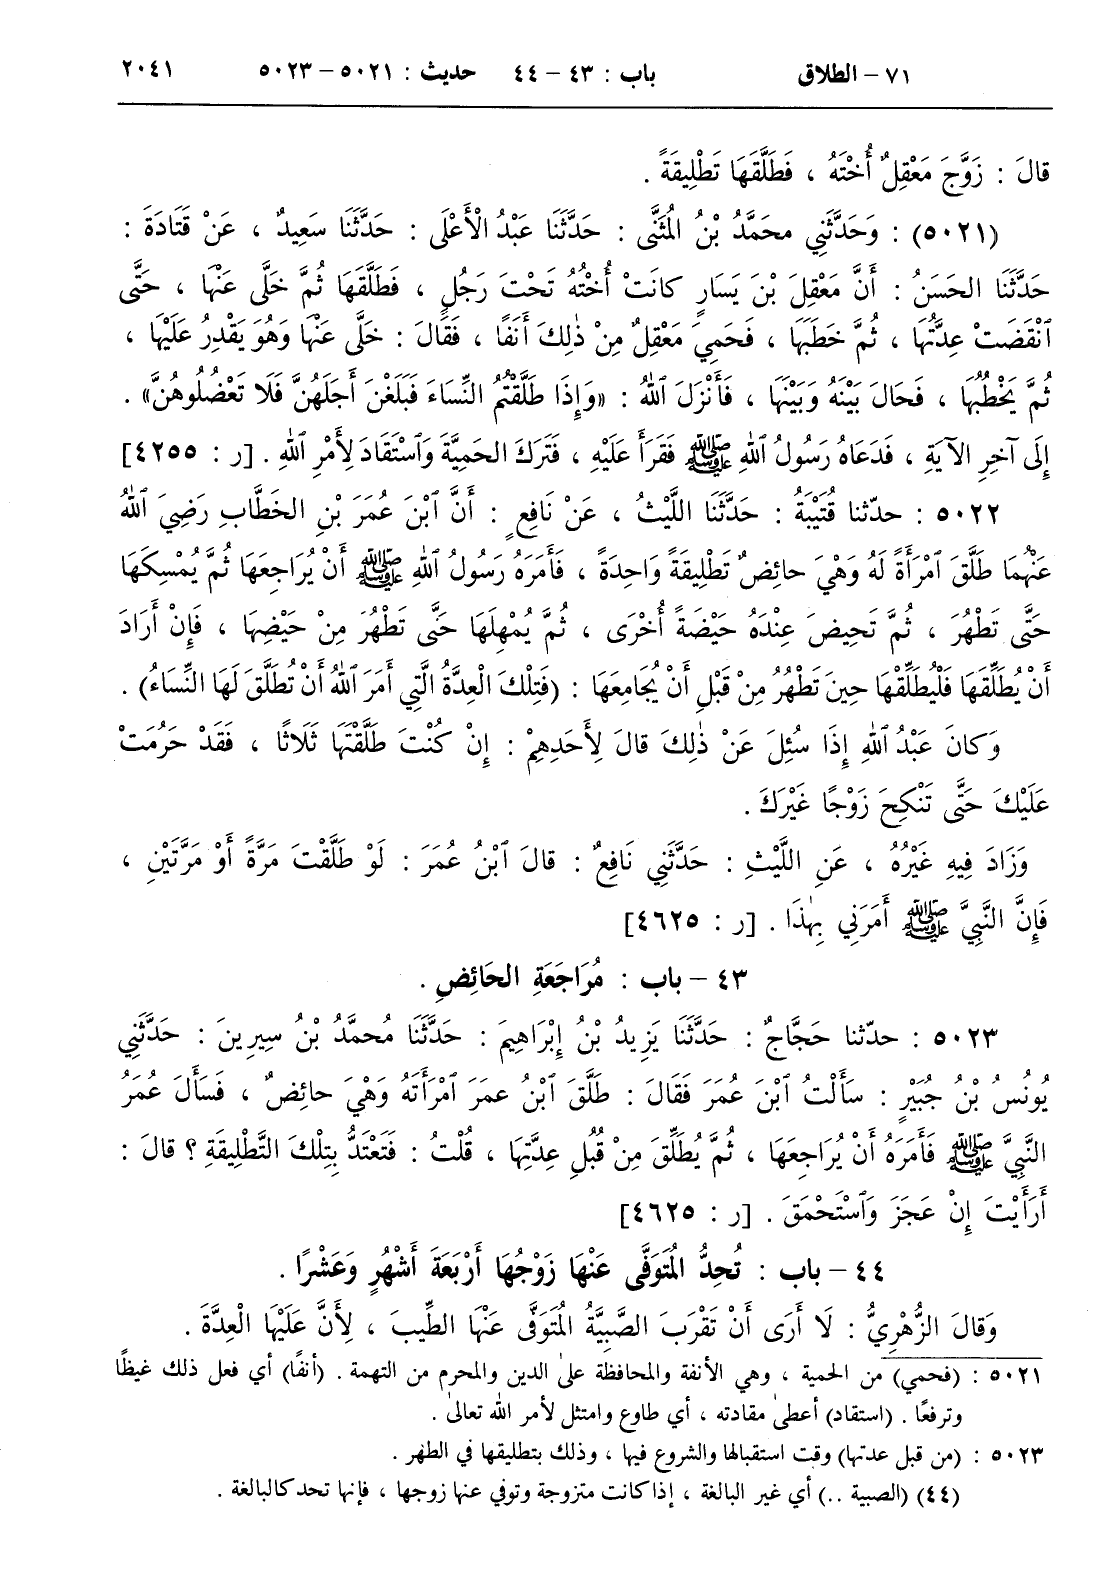 ٧١ – الطلاق باب : ٤٣ – ٤٤ حديث : ٥٠٢١ – ٥٠٢٣ ٢٠٤١
قالَ : زَوَّجَ مَعْقِلٌ أُخْتَهُ ، فَطَلَّقَهَا تَطْلِيقَةً .
(٥٠٢١) : وَحَدَّثَنِي محَمَّدُ بْنُ المُثَنَّى : حَدَّثَنَا عَبْدُ الْأَعْلَى : حَدَّثَنَا سَعِيدٌ ، عَنْ قَتَادَةَ :
حَدَّثَنَا الحَسَنُ : أَنَّ مَعْقِلَ بْنَ يَسَارٍ كانَتْ أُخْتُهُ تَحْتَ رَجُلٍ ، فَطَلَّقَهَا ثُمَّ خَلَّى عَنْهَا ، حَتَّى
ٱنْقَضَتْ عِدَّتُهَا ، ثُمَّ خَطَبَهَا ، فَحَمِيَ مَعْقِلٌ مِنْ ذٰلِكَ أَنَفًا ، فَقَالَ : خَلَّى عَنْهَا وَهُوَ يَقْدِرُ عَلَيْهَا ،
ثُمَّ يَخْطُبُهَا ، فَحَالَ بَيْنَهُ وَبَيْنَهَا ، فَأَنْزَلَ ٱللهُ : «وَإِذَا طَلَّقْتُمُ النِّسَاءَ فَبَلَغْنَ أَجَلَهُنَّ فَلَا تَعْضُلُوهُنَّ» .
إِلَى آخِرِ الآيَةِ ، فَدَعَاهُ رَسُولُ ٱللهِ ﷺ فَقَرَأَ عَلَيْهِ ، فَتَرَكَ الحَمِيَّةَ وَٱسْتَقَادَ لِأَمْرِ ٱللهِ . [ر : ٤٢٥٥]
٥٠٢٢ : حدّثنا قُتَيْبَةُ : حَدَّثَنَا اللَّيْثُ ، عَنْ نَافِعٍ : أَنَّ ٱبْنَ عُمَرَ بْنِ الخَطَّابِ رَضِيَ ٱللهُ
عَنْهُمَا طَلَّقَ ٱمْرَأَةً لَهُ وَهْيَ حائِضٌ تَطْلِيقَةً وَاحِدَةً ، فَأَمَرَهُ رَسُولُ ٱللهِ ﷺ أَنْ يُرَاجِعَهَا ثُمَّ يُمْسِكَهَا
حَتَّى تَطْهُرَ ، ثُمَّ تَحِيضَ عِنْدَهُ حَيْضَةً أُخْرَى ، ثُمَّ يُمْهِلَهَا حَتَّى تَطْهُرَ مِنْ حَيْضِهَا ، فَإِنْ أَرَادَ
أَنْ يُطَلِّقَهَا فَلْيُطَلِّقْهَا حِينَ تَطْهُرُ مِنْ قَبْلِ أَنْ يُجَامِعَهَا : (فَتِلْكَ الْعِدَّةُ الَّتِي أَمَرَ ٱللهُ أَنْ تُطَلَّقَ لَهَا النِّسَاءُ) .
وَكانَ عَبْدُ ٱللهِ إِذَا سُئِلَ عَنْ ذٰلِكَ قالَ لِأَحَدِهِمْ : إِنْ كُنْتَ طَلَّقْتَهَا ثَلَاثًا ، فَقَدْ حَرُمَتْ
عَلَيْكَ حَتَّى تَنْكِحَ زَوْجًا غَيْرَكَ .
وَزَادَ فِيهِ غَيْرُهُ ، عَنِ اللَّيْثِ : حَدَّثَنِي نَافِعٌ : قالَ ٱبْنُ عُمَرَ : لَوْ طَلَّقْتَ مَرَّةً أَوْ مَرَّتَيْنِ ،
فَإِنَّ النَّبِيَّ ﷺ أَمَرَنِي بِهٰذَا . [ر : ٤٦٢٥]
٤٣ – باب : مُرَاجَعَةِ الحَائِضِ .
٥٠٢٣ : حدّثنا حَجَّاجٌ : حَدَّثَنَا يَزِيدُ بْنُ إِبْرَاهِيمَ : حَدَّثَنَا مُحمَّدُ بْنُ سِيرِينَ : حَدَّثَنِي
يُونُسُ بْنُ جُبَيْرٍ : سَأَلْتُ ٱبْنَ عُمَرَ فَقَالَ : طَلَّقَ ٱبْنُ عمَرَ ٱمْرَأَتَهُ وَهْيَ حائِضٌ ، فَسَأَلَ عُمَرُ
النَّبِيَّ ﷺ فَأَمَرَهُ أَنْ يُرَاجِعَهَا ، ثُمَّ يُطَلِّقَ مِنْ قُبُلِ عِدَّتِهَا ، قُلْتُ : فَتَعْتَدُّ بِتِلْكَ التَّطْلِيقَةِ ؟ قالَ :
أَرَأَيْتَ إِنْ عَجَزَ وَٱسْتَحْمَقَ . [ر : ٤٦٢٥]
٤٤ – باب : تُحِدُّ المُتَوَفَّى عَنْهَا زَوْجُهَا أَرْبَعَةَ أَشْهُرٍ وَعَشْرًا .
وَقالَ الزُّهْرِيُّ : لَا أَرَى أَنْ تَقْرَبَ الصَّبِيَّةُ المُتَوَفَّى عَنْهَا الطِّيبَ ، لِأَنَّ عَلَيْهَا الْعِدَّةَ .
٥٠٢١ : (فحمي) من الحمية ، وهي الأنفة والمحافظة على الدين والمحرم من التهمة . (أنفًا) أي فعل ذلك غيظًا
وترفعًا . (استقاد) أعطى مقادته ، أي طاوع وامتثل لأمر الله تعالى .
٥٠٢٣ : (من قبل عدتها) وقت استقبالها والشروع فيها ، وذلك بتطليقها في الطهر .
(٤٤) (الصبية ..) أي غير البالغة ، إذا كانت متزوجة وتوفي عنها زوجها ، فإنها تحد كالبالغة .